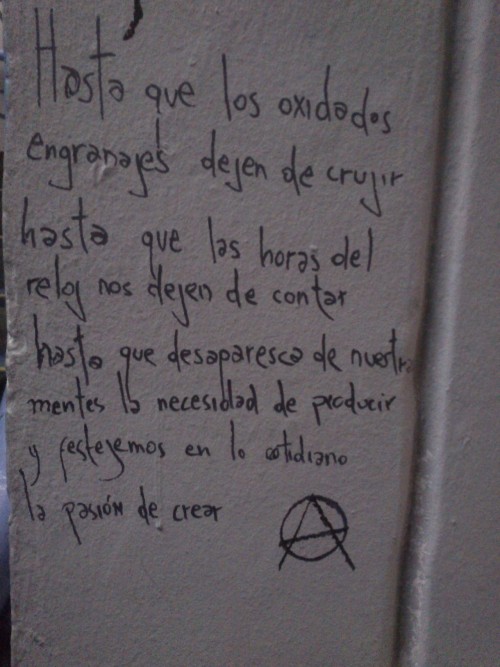 Hasta que los oxidados
engranajes dejen de crujir
hasta que las horas del
reloj nos dejen de contar
hasta que desaparesca de nuestra
mentes la necesidad de producir
y festejemos en lo cotidiano
la pasión de crear